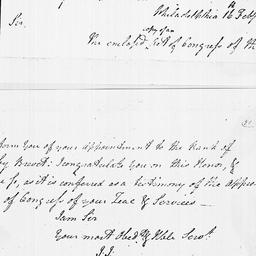 Philadelphia 16th Feby
Sir.
Copy of an
The enclosed Act of Congress of th
31
form you of your appointment to the Rank of
by Brevet: I congratulate you on this Honor, &
so, as it is conferred as a testimony of the Appro
of Congress of your Zeal & Services—
I am Sir
Your most Obedt. & Hble Servt.
J.J.